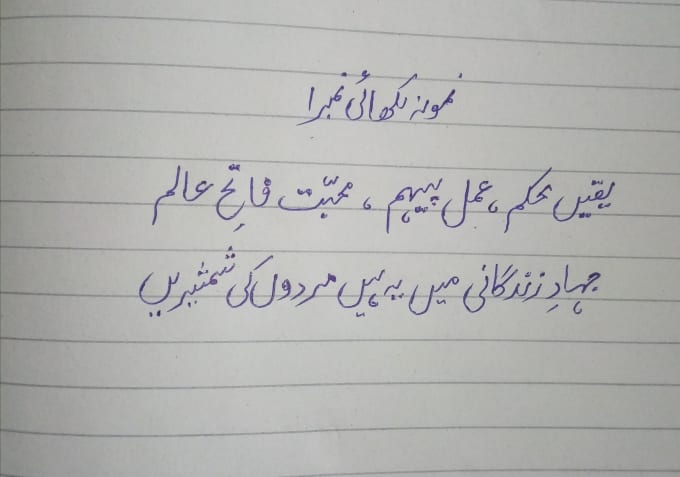 نمونہ لکھائی نمبر ۱
یقیں محکم، عمل پیہم، محبّت فاتحِ عالم
جہادِ زندگانی میں یہ ہیں مردوں کی شمشیریں